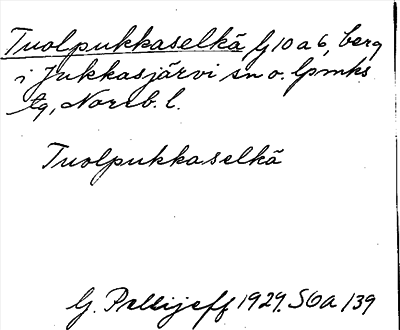 Tuolpukkaselkä G10a6, berg
i Jukkasjärvi sn o. lpmks
tg, Norrb. l.
Tuolpukkaselkä
G. Pellijeff 1929. S6a 139